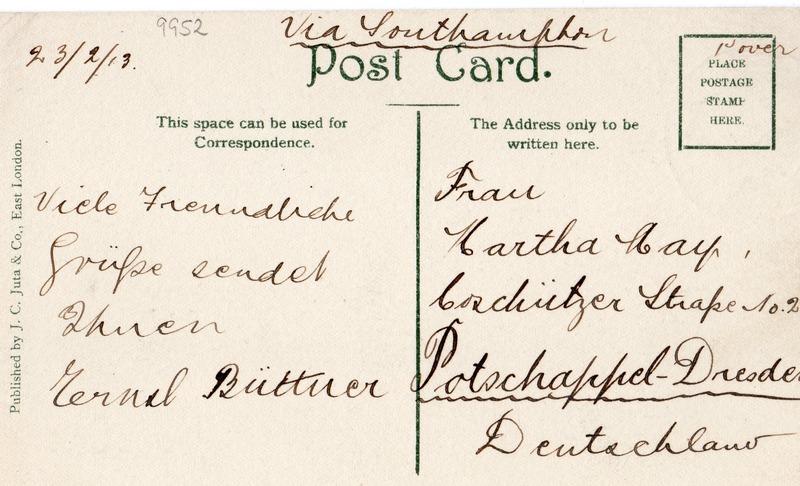 9952
Via Southampton
23/2/13.
Post Card.
over
PLACE
POSTAGE
STAMP
HERE.
This space can be used for
Correspondence.
The Address only to be
written here.
Published by J. C. Juta & Co., East London.
Viele Freundliche
Grüße sendet
Ihnen
Ernst Büttner
Frau
Martha May,
Coschützer Straße No. 2
Potschappel-Dresden
Deutschland